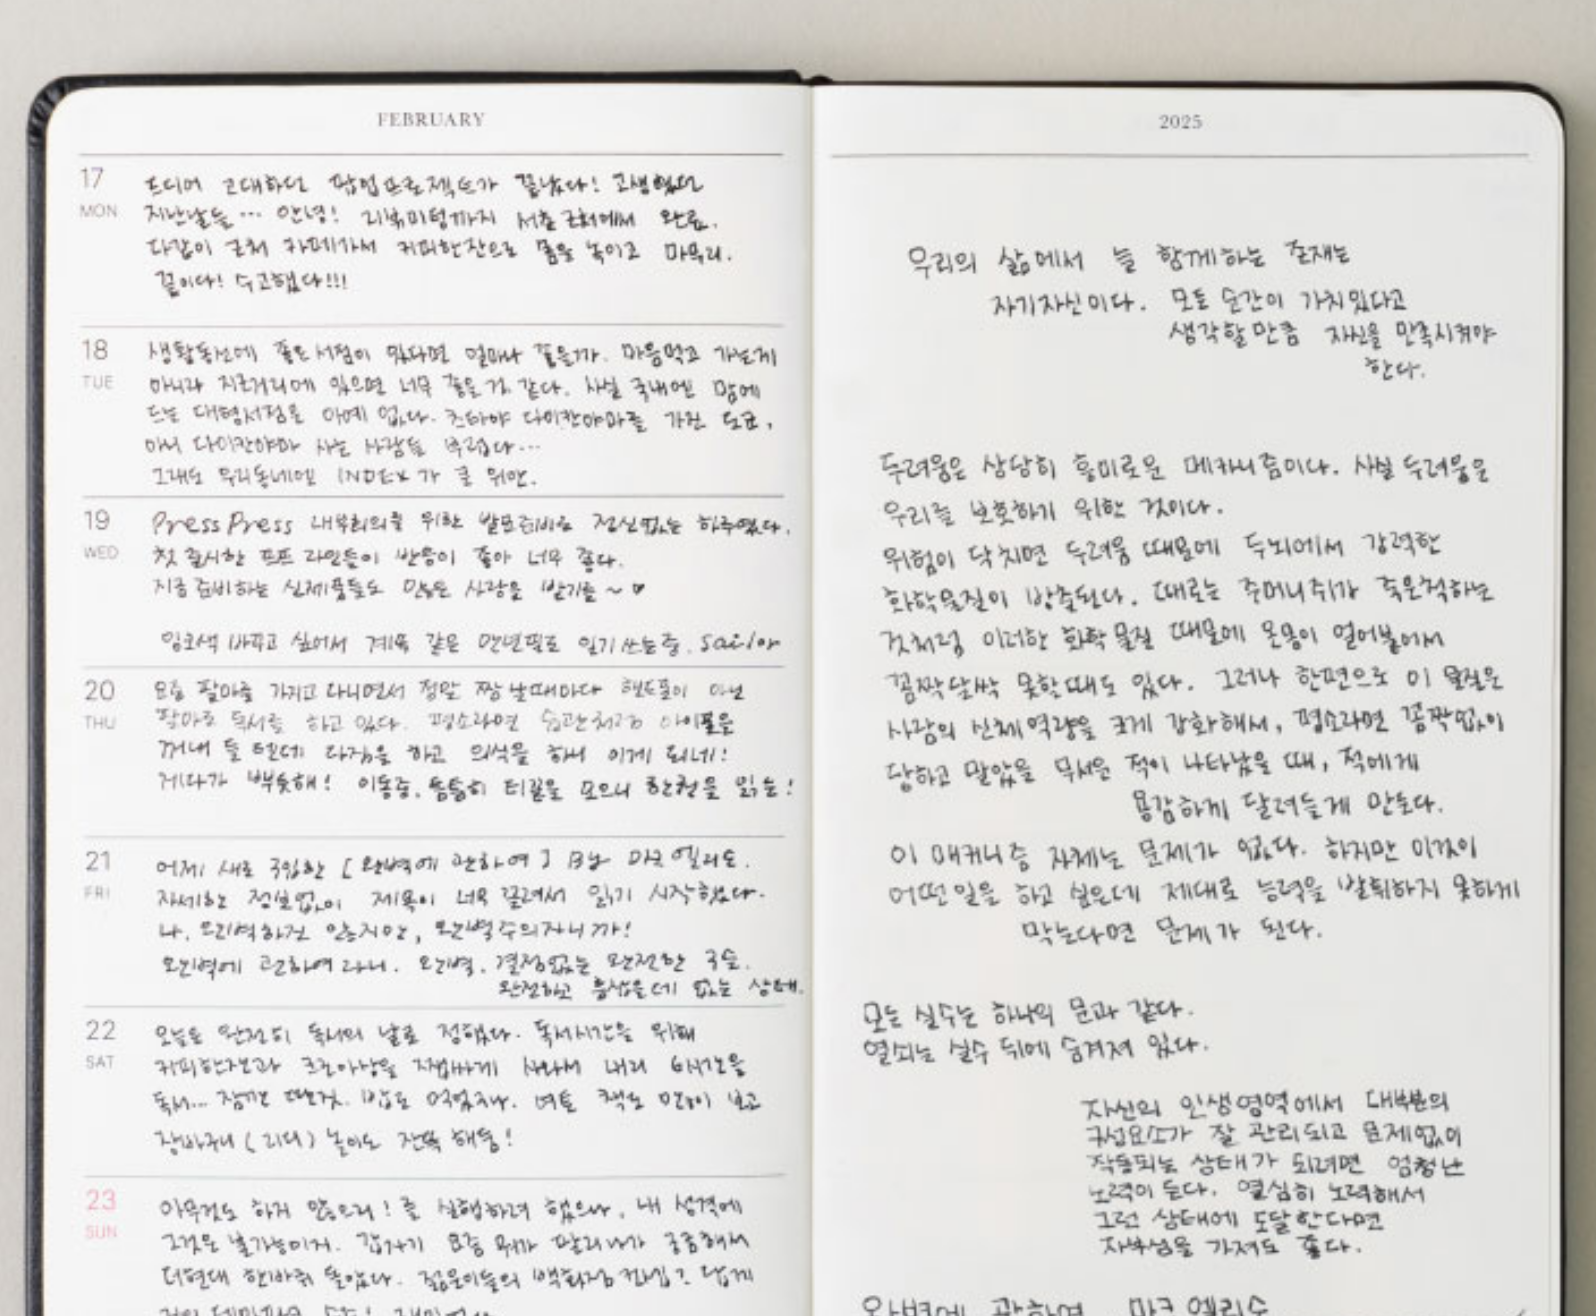 FEBRUARY
17
MON
드디어 고대하던 팝업프로젝트가 끝났다! 고생했던
지난날들... 안녕! 리뷰미팅까지 서촌 근처에서 완료.
다같이 근처 카페가서 커피한잔으로 몸을 녹이고 마무리.
끝이다! 수고했다!!!
18
TUE
생활동선에 좋은 서점이 있다면 얼마나 좋을까. 마음먹고 가는게
아니라 지근거리에 있으면 너무 좋을 것 같다. 사실 국내엔 맘에
드는 대형서점은 아예 없다. 츠타야 다이칸야마를 가진 도쿄,
아니 다이칸야마 사는 사람들 부럽다...
그래도 우리동네에 INDEX가 큰 위안.
19
WED
Press Press 내부회의를 위한 발표준비로 정신없는 하루였다.
첫 출시한 프프 라인들이 반응이 좋아 너무 좋다.
지금 준비하는 신제품들도 많은 사랑을 받기를~♥
잉크색 바꾸고 싶어서 계속 같은 만년필로 일기 쓰는중. sailor
20
THU
요즘 팔마를 가지고 다니면서 정말 짬 날때마다 핸드폰이 아닌
팔마로 독서를 하고 있다. 평소라면 습관처럼 아이폰을
꺼내 들 텐데 다짐을 하고 의식을 하니 이게 되네!
게다가 뿌듯해! 이동중, 틈틈히 티끌을 모으니 한권을 읽는!
21
FRI
어제 새로 구입한 [완벽에 관하여] By 마크 엘리슨.
자세한 정보없이 제목이 너무 끌려서 읽기 시작했다.
나. 완벽하진 않지만, 완벽주의자니까!
완벽에 관하여라니. 완벽. 결점없는 완전한 구슬.
완전하고 흠잡을데 없는 상태.
22
SAT
오늘은 완전히 독서의 날로 정했다. 독서시간을 위해
커피한잔과 크로아상을 잽싸게 사와서 내리 6시간을
독서... 잠깐 딴짓. 밥도 먹었지나. 여튼 책도 많이 보고
장하구나 (리디) 놀이도 잔뜩 해둠!
23
SUN
아무것도 하지 않으리! 를 실행하려 했으나, 내 성격에
그것은 불가능이지. 갑자기 요즘 뭐가 팔리나가 궁금해서
더현대 한바퀴 돌았다. 젊은이들의 백화점 컨셉? 답게
2025
우리의 삶에서 늘 함께하는 존재는
자기자신이다. 모든 순간이 가치있다고
생각할만큼 자신을 만족시켜야
한다.
두려움은 상당히 흥미로운 메카니즘이다. 사실 두려움은
우리를 보호하기 위한 것이다.
위험이 닥치면 두려움 때문에 두뇌에서 강력한
화학물질이 방출된다. 때로는 주머니쥐가 죽은척하는
것처럼 이러한 화학물질 때문에 온몸이 얼어붙어서
꼼짝달싹 못할때도 있다. 그러나 한편으로 이 물질은
사람의 신체역량을 크게 강화해서, 평소라면 꼼짝없이
당하고 말았을 무서운 적이 나타났을 때, 적에게
용감하게 달려들게 만든다.
이 매커니즘 자체는 문제가 없다. 하지만 이것이
어떤일을 하고 싶은데 제대로 능력을 발휘하지 못하게
막는다면 문제가 된다.
모든 실수는 하나의 문과 같다.
열쇠는 실수 뒤에 숨겨져 있다.
자신의 인생영역에서 대부분의
구성요소가 잘 관리되고 문제없이
작동되는 상태가 되려면 엄청난
노력이 든다. 열심히 노력해서
그런 상태에 도달한다면
자부심을 가져도 좋다.
완벽에 관하여 마크 엘리슨